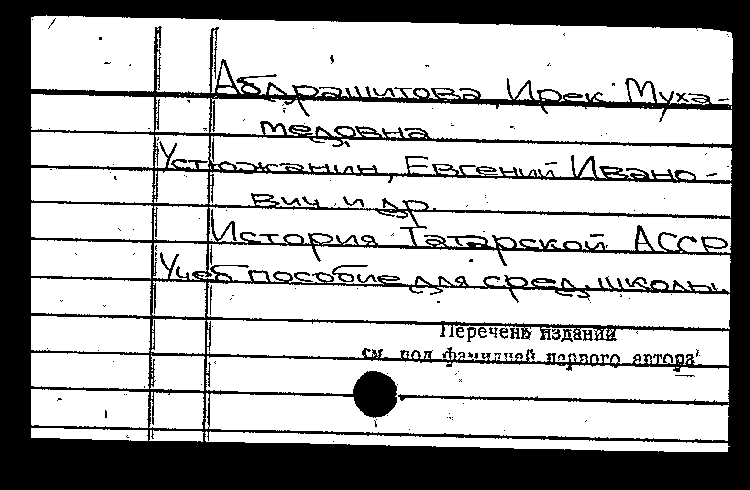 Абдрашитова, Ирек Муха-
медовна
Устюжанин, Евгений Ивано-
вич и др.
История Татарской АССР
Учеб пособие для сред. школы.
Перечень изданий
см. под фамилией первого автора